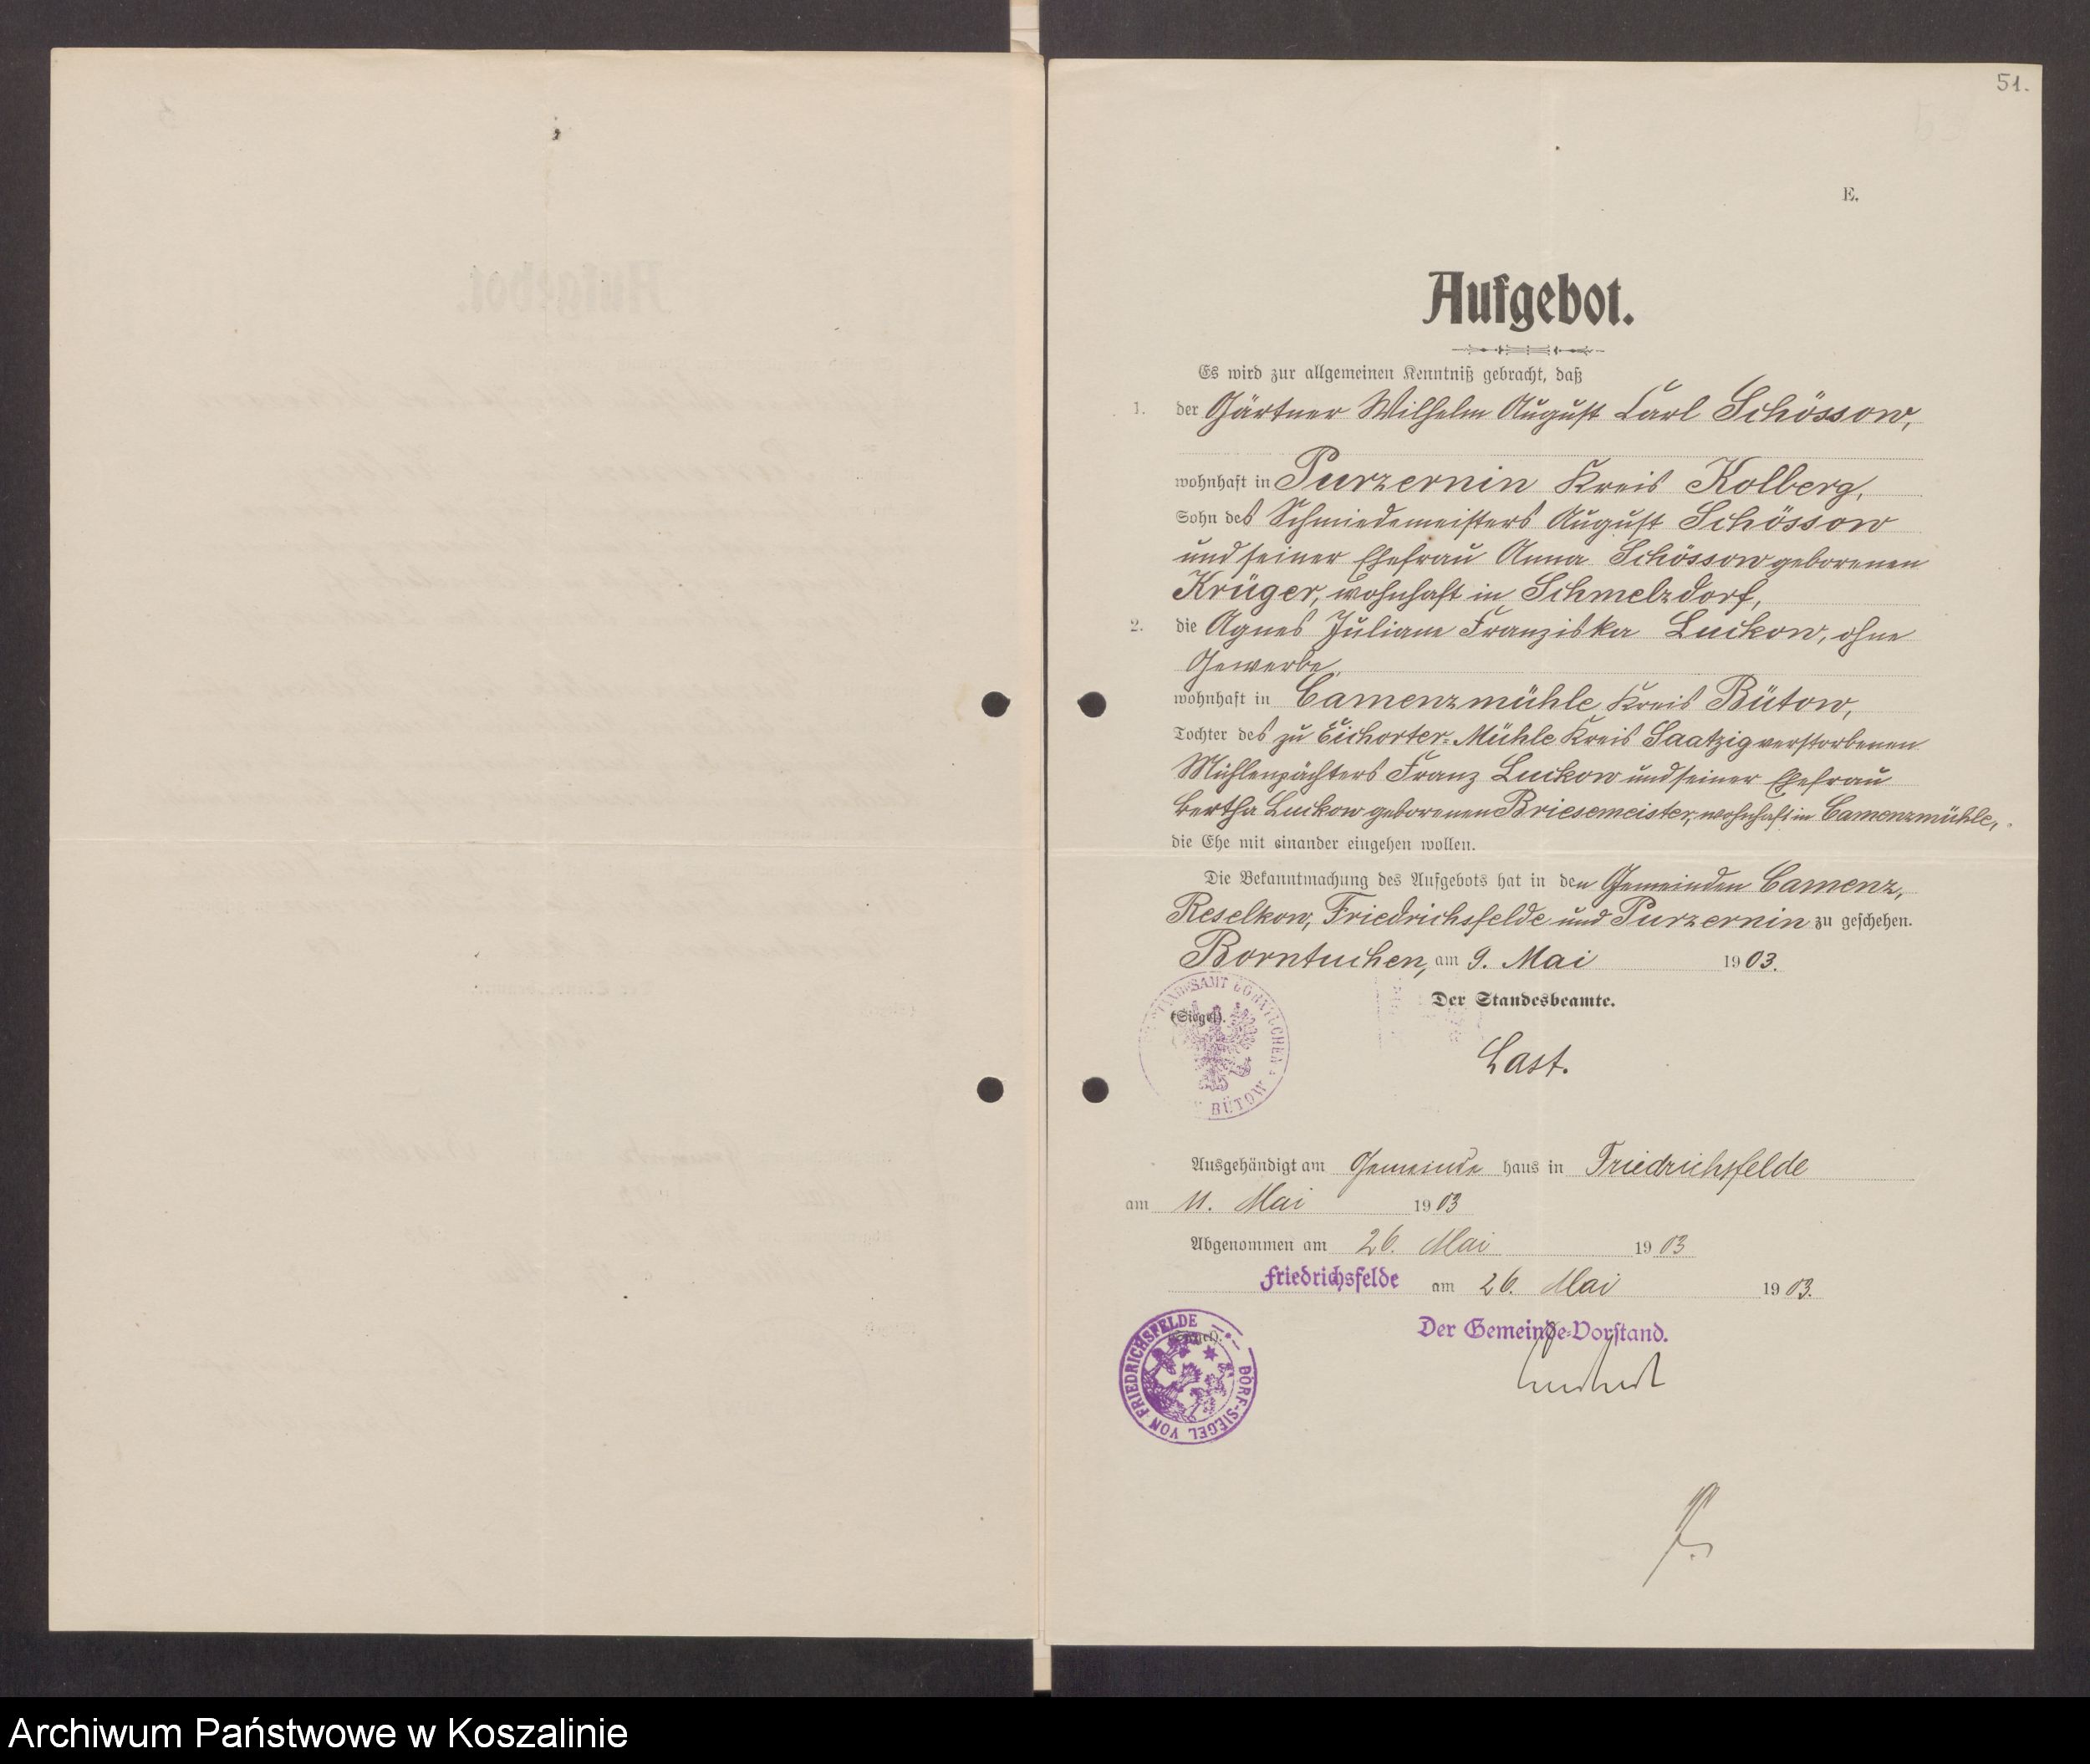 51.
E.
Aufgebot.
Es wird zur allgemeinen Kenntniß gebracht, daß
1. der Gärtner Wilhelm August Carl Schössow,
wohnhaft in Purzernin Kreis Kolberg,
Sohn des Schmiedemeisters August Schössow
und seiner Ehefrau Anna Schössow geborenen
Krüger, wohnhaft in Schmelzdorf,
2. die Agnes Juliane Franziska Luckow, ohne
Gewerbe,
wohnhaft in Camenzmühle Kreis Bütow,
Tochter des zu Eichorter-Mühle Kreis Saatzig verstorbenen
Mühlenpächters Franz Luckow und seiner Ehefrau
Bertha Luckow geborenen Briesemeister, wohnhaft in Camenzmühle,
die Ehe mit einander eingehen wollen.
Die Bekanntmachung des Aufgebots hat in den Gemeinden Camenz,
Reselkow, Friedrichsfelde und Purzernin zu geschehen.
Borntuchen, am 9. Mai 1903.
Der Standesbeamte.
(Siegel).
BÜTOW
Last.
Ausgehändigt am Gemeinde haus in Friedrichsfelde
am 11. Mai 1903
Abgenommen am 26. Mai 1903
Friedrichsfelde am 26. Mai 1903.
Der Gemeinde-Vorstand.
DORF-SIEGEL VON FRIEDRICHSFELDE
Archiwum Państwowe w Koszalinie